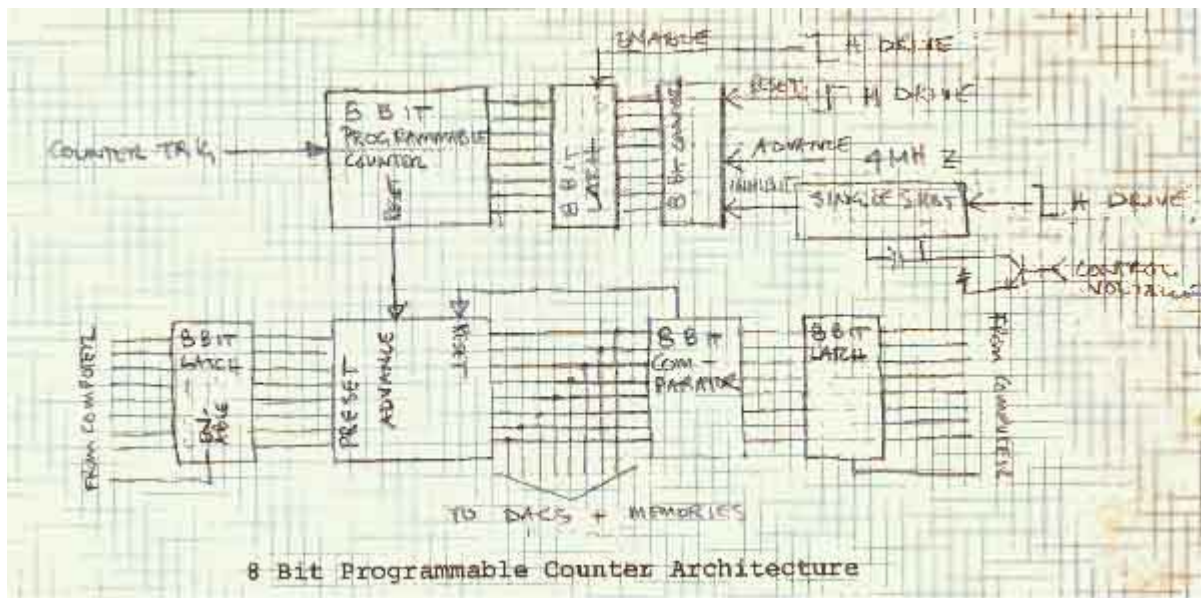 ENABLE
H DRIVE
8 BIT
PROGRAMMABLE
COUNTER
RESET
8 BIT
LATCH
8 BIT COUNTER
RESET
H DRIVE
COUNTER TRIG
ADVANCE
4MHZ
INHIBIT
SINGLE SHOT
H DRIVE
CONTROL
VOLTAGE
FROM COMPUTER
8 BIT
LATCH
PRESET
ADVANCE
RESET
8 BIT
COM-
PARATOR
8 BIT
LATCH
FROM COMPUTER
TO DACS + MEMORIES
8 Bit Programmable Counter Architecture